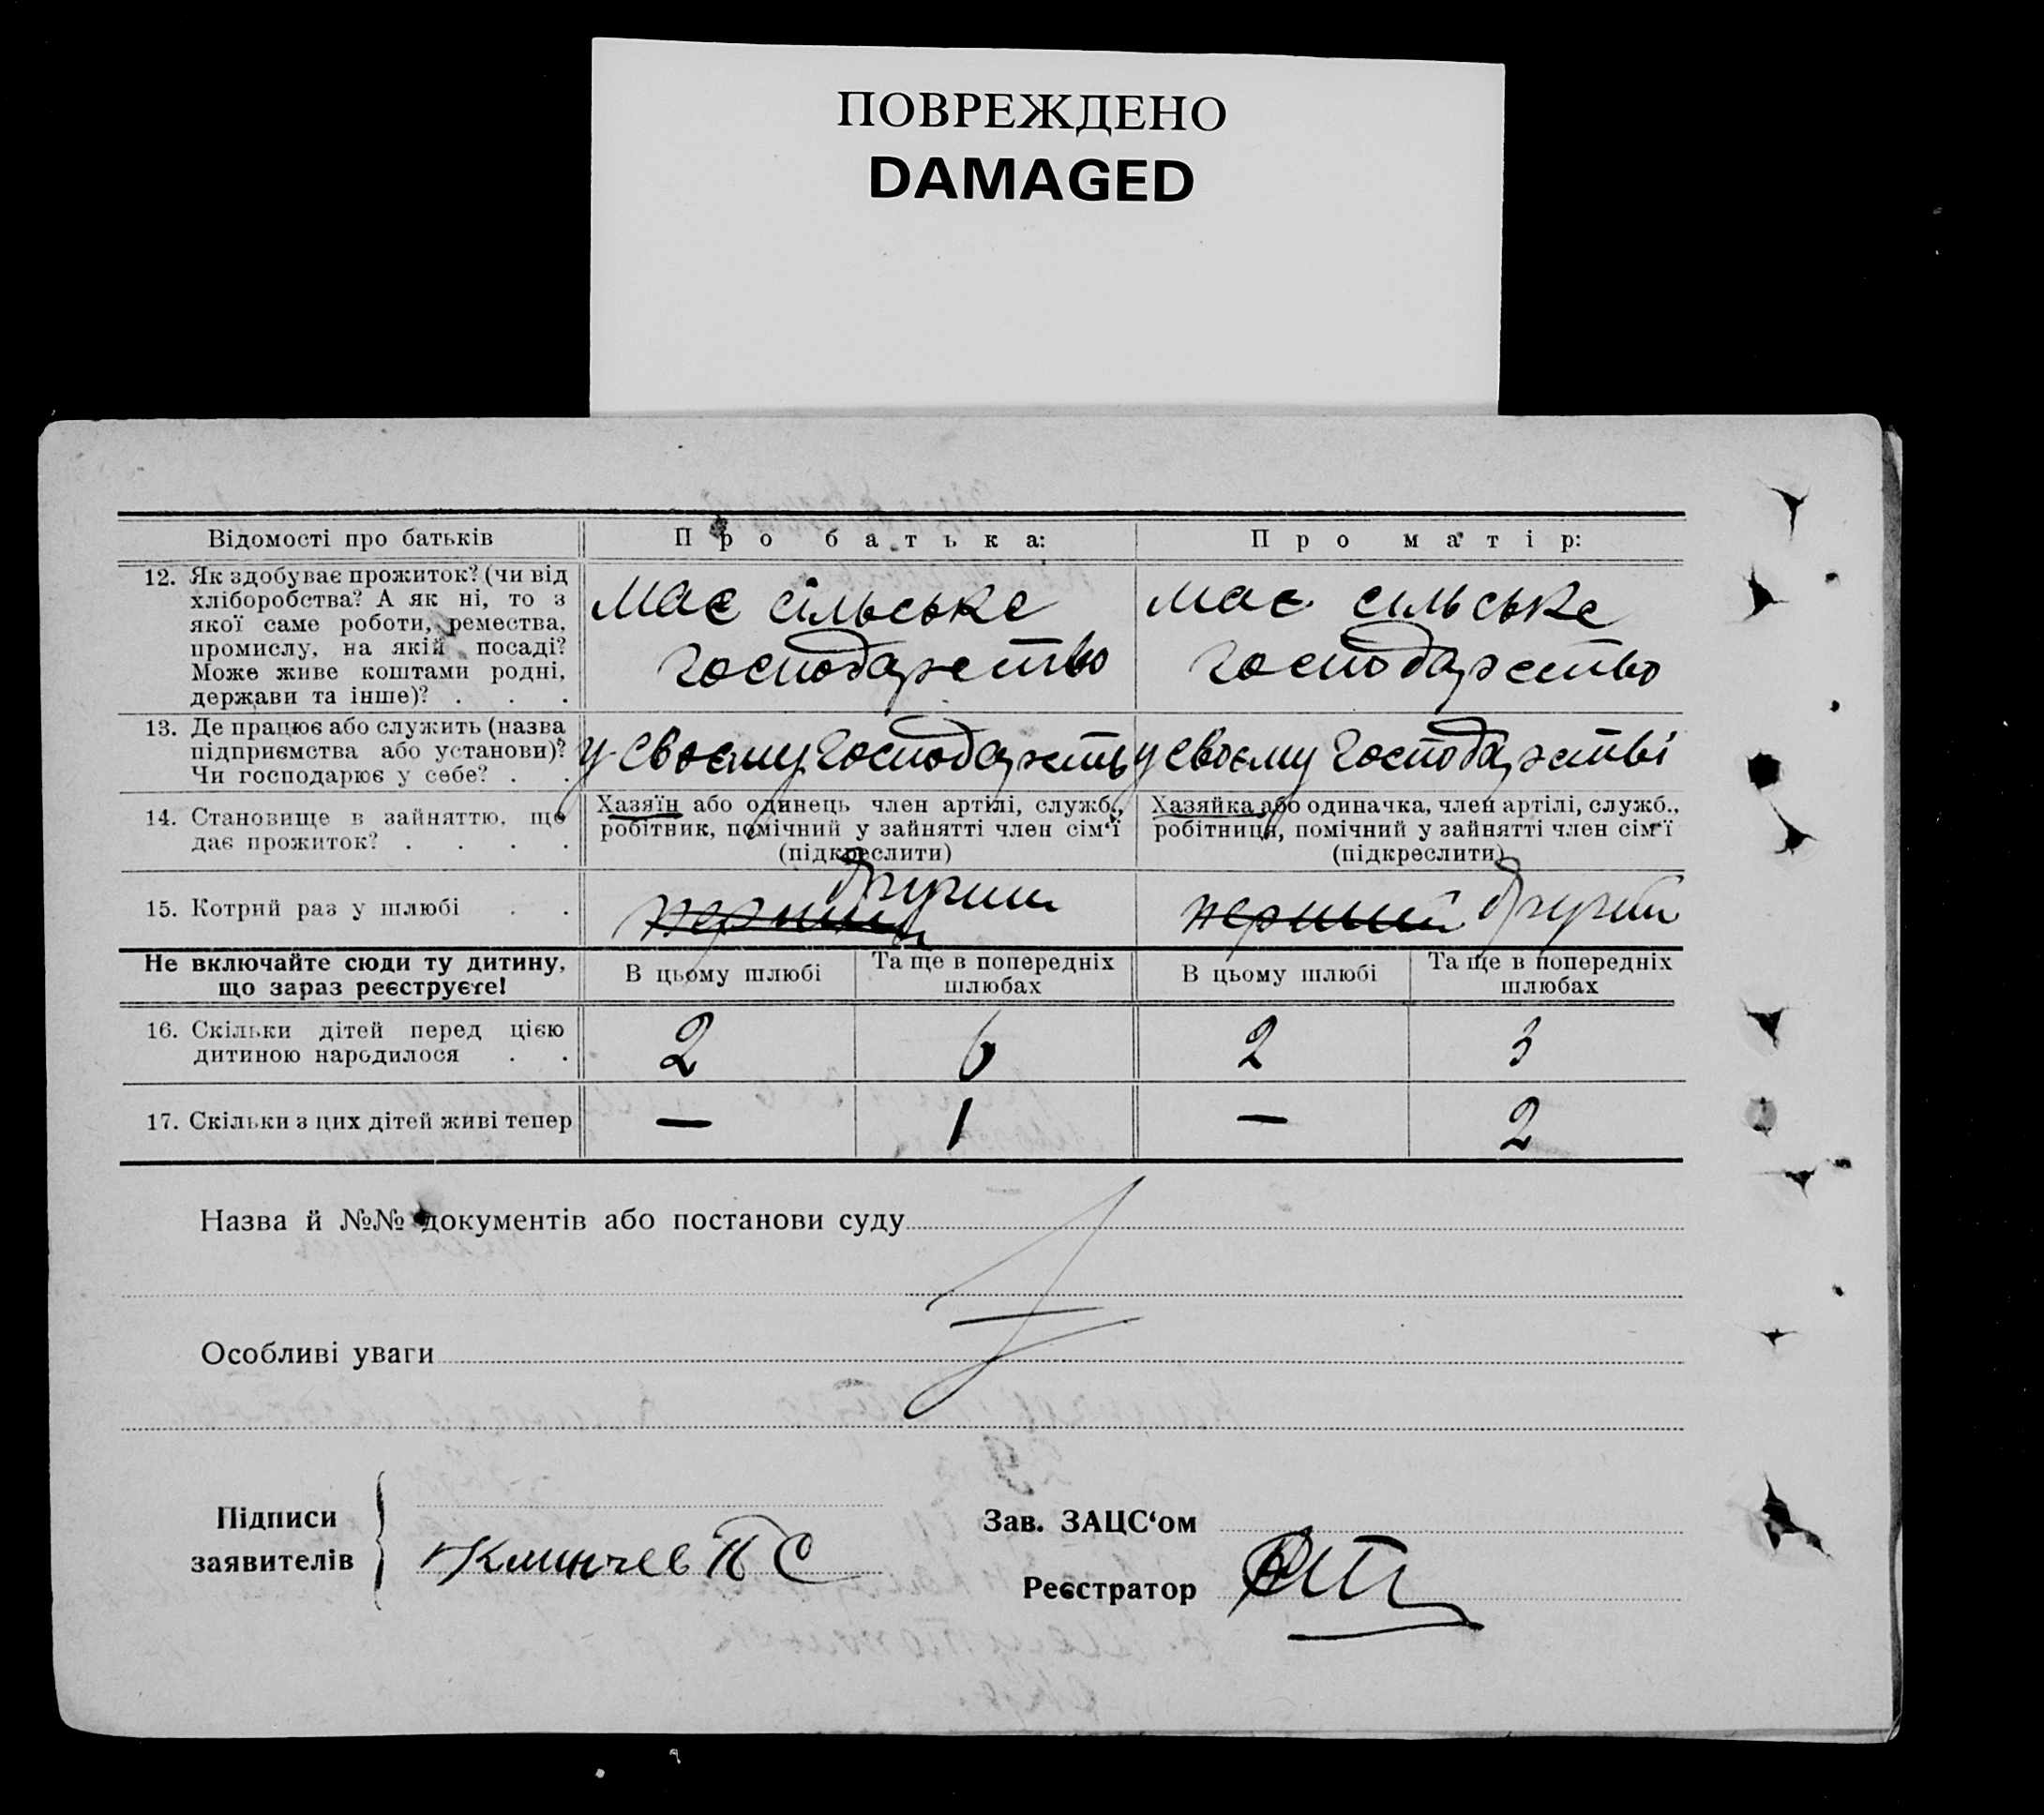 ПОВРЕЖДЕНО
DAMAGED
Відомості про батьків
Про батька:
Про матір:
12. Як здобуває прожиток? (чи від
хліборобства? А як ні, то з
якої саме роботи, ремества,
промислу, на якій посаді?
Може живе коштами родні,
держави та інше)? . . .
має сільське
господарство
має сільське
господарство
13. Де працює або служить (назва
підприємства або установи)?
Чи господарює у себе? . .
у своєму господарств
у своєму господарстві
14. Становище в зайняттю, що
дає прожиток? . . . .
Хазяїн або одинець член артілі, служб.,
робітник, помічний у зайнятті член сім'ї
(підкреслити)
Хазяйка або одиначка, член артілі, служб.,
робітниця, помічний у зайнятті член сім'ї
(підкреслити)
15. Котрий раз у шлюбі . .
перший другий
перший другий
Не включайте сюди ту дитину,
що зараз реєструєте!
В цьому шлюбі
Та ще в попередніх
шлюбах
В цьому шлюбі
Та ще в попередніх
шлюбах
16. Скільки дітей перед цією
дитиною народилося . .
2
6
2
3
17. Скільки з цих дітей живі тепер
—
1
—
2
Назва й №№ документів або постанови суду
Особливі уваги
Підписи
заявителів
Клинчев П С
Зав. ЗАЦС‘ом
Реєстратор